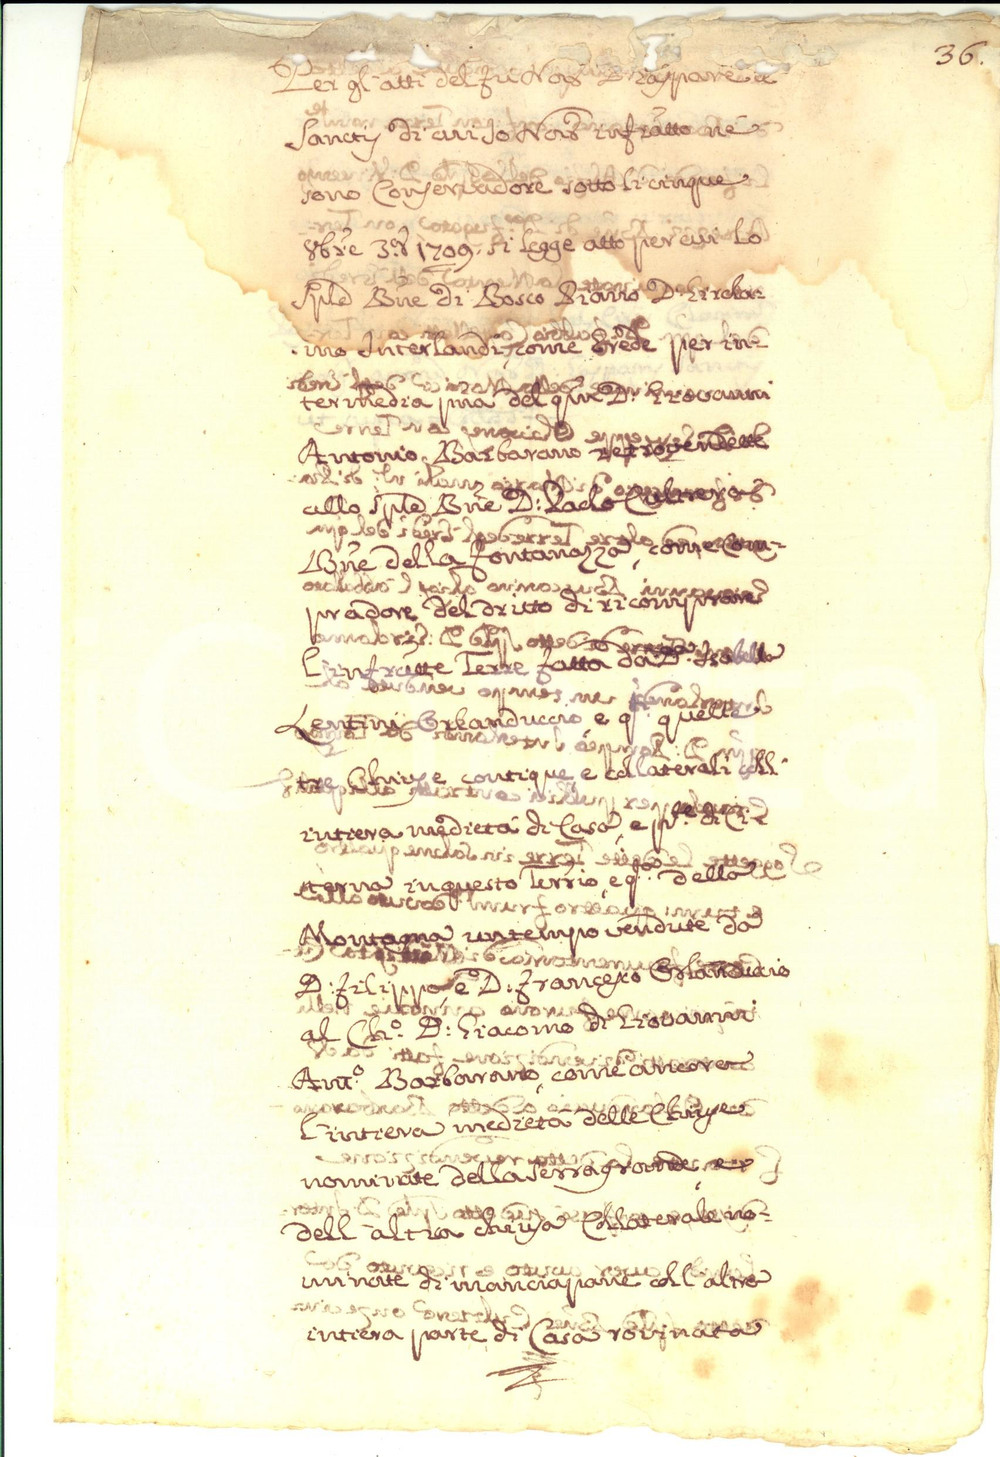 36.
Per gl'atti del fu Nor D:
Sanctij di cui Io Nor infratto ne
sono Conservadore sotto li cinque
8bre 3.a 1709. si legge atto per cui lo
Sple Bne di Bosco Piano D:
mo Interlandi, come Erede per in-
termedia pna del qm D: Giovanni
Antonio Barbarano retrovendette
allo Sple Bne D: Paolo
Bne della Fontanazza, come Com-
pradore del dritto di ricomprare
l'infratte Terre fatta da D. Isabella
Lentini Grlanduccio, e qt quelle
tre Chiuse contique, e collaterali coll'
intiera medietà di Casa, e di Ci-
sterna in questo Terrio, e qo della
Montagna un tempo vendute da
D: Filippo, e D: Francesco Grlanducio
al Cho. D: Giacomo di Giovanni
Anto. Barbarano, come ancora
l'intiera medietà delle Chiuse
nominate della Serra grande, e
dell'altra chiusa Collaterale no-
minate di manciapane coll'altra
intiera parte di Casa rovinata